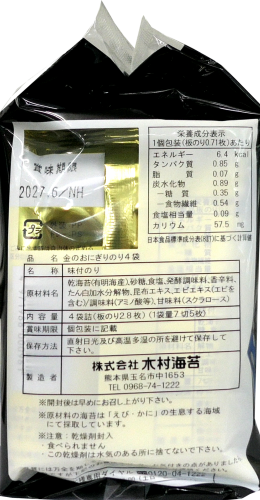 賞味期限
2027.6/NH
プラ
栄養成分表示
1個包装(板のり0.71枚)あたり
エネルギー 6.4 kcal
タンパク質 0.85 g
脂質 0.07 g
炭水化物 0.89 g
―糖質 0.35 g
―食物繊維 0.54 g
食塩相当量 0.09 g
カリウム 57.5 mg
日本食品標準成分表(8訂)に基づく計算値
品名 金のおにぎりのり4袋
名称 味付のり
原材料名 乾海苔(有明海産)、砂糖、食塩、発酵調味料、香辛料、
たん白加水分解物、昆布エキス、エビエキス(エビを
含む)/調味料(アミノ酸等)、甘味料(スクラロース)
内容量 4袋詰(板のり2.8枚) (1袋量7切5枚)
賞味期限 個包装に記載
保存方法 直射日光及び高温多湿の所を避けて保存して
下さい。
製造者 株式会社 木村海苔
熊本県玉名市中1653
TEL 0968-74-1222
※開封後は早めにお召し上がり下さい。
※原材料の海苔は「えび・かに」の生息する海域
にて採取しています。
※注意:乾燥剤封入
・食べられません
・この乾燥剤は水気のある所に捨てないで下さい。
0120-04-1222